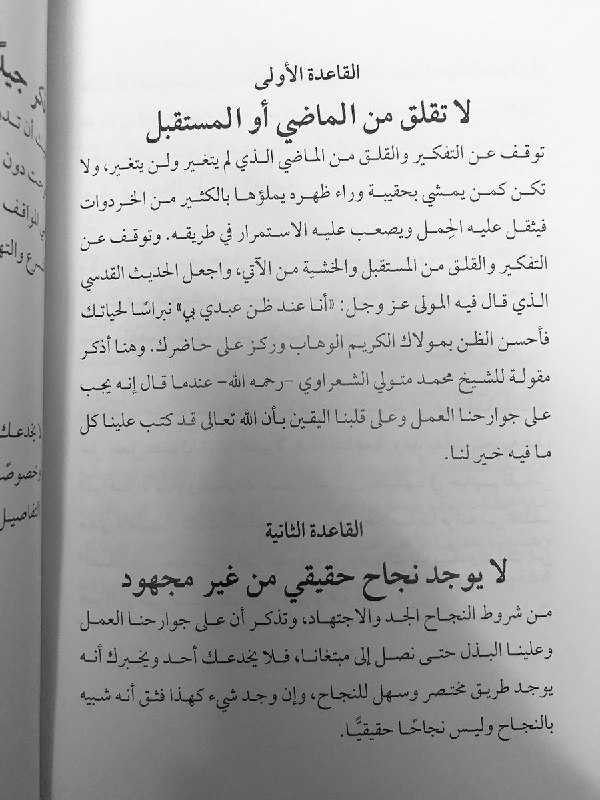 القاعدة الأولى
لا تقلق من الماضي أو المستقبل
توقف عن التفكير والقلق من الماضي الذي لم يتغير ولن يتغير، ولا
تكن كمن يمشي بحقيبة وراء ظهره يملؤها بالكثير من الخردوات
فيثقل عليه الحِمل ويصعب عليه الاستمرار في طريقه. وتوقف عن
التفكير والقلق من المستقبل والخشية من الآتي، واجعل الحديث القدسي
الذي قال فيه المولى عز وجل: «أنا عند ظن عبدي بي» نبراسًا لحياتك
فأحسن الظن بمولاك الكريم الوهاب وركز على حاضرك. وهنا أذكر
مقولة للشيخ محمد متولي الشعراوي -رحمه الله- عندما قال إنه يجب
على جوارحنا العمل وعلى قلبنا اليقين بأن الله تعالى قد كتب علينا كل
ما فيه خير لنا.
القاعدة الثانية
لا يوجد نجاح حقيقي من غير مجهود
من شروط النجاح الجد والاجتهاد، وتذكر أن على جوارحنا العمل
وعلينا البذل حتى نصل إلى مبتغانا، فلا يخدعك أحد ويخبرك أنه
يوجد طريق مختصر وسهل للنجاح، وإن وجد شيء كهذا فثق أنه شبيه
بالنجاح وليس نجاحًا حقيقيًّا.